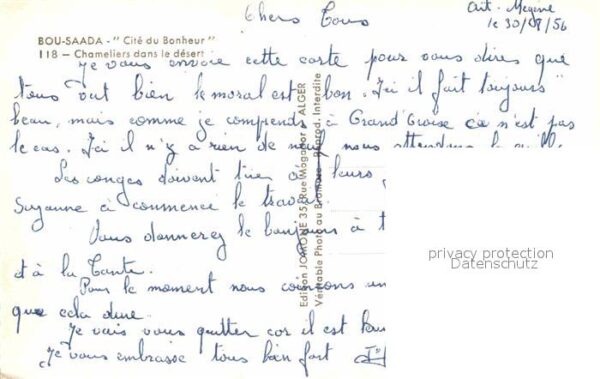 Chers Tous
Aït-Megene
le 30/08/56
BOU-SAADA - "Cité du Bonheur"
118 — Chameliers dans le désert
Je vous envoie cette carte pour vous dires que
tous vat bien le moral est bon. Ici il fait toujours
beau, mais comme je comprends à Grand'Croise ce n'est pas
le cas. Ici il n'y a rien de neuf nous attendons
Les conges doivent tirer à leurs
Suzanne à commencé le travail
Vous donnerez le bonjour à
et à la Tante.
Pour le moment nous
que cela dure.
Je vais vous quitter car il est
Je vous embrasse tous bien fort
Edition JOMONE 35, Rue Mogador - ALGER
Véritable Photo au Bromure - Reprod. Interdite
privacy protection
Datenschutz